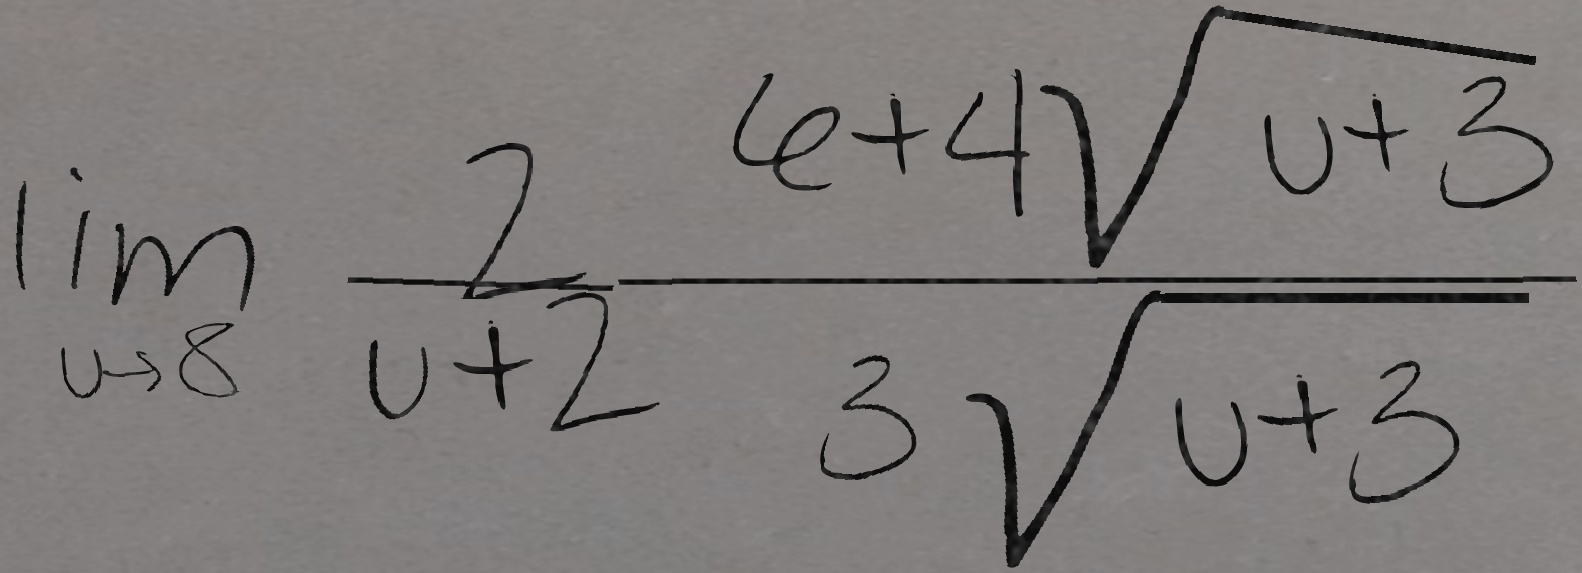 \lim_{u \to 8} \frac{2}{u+2} \frac{6+4\sqrt{u+3}}{3\sqrt{u+3}}